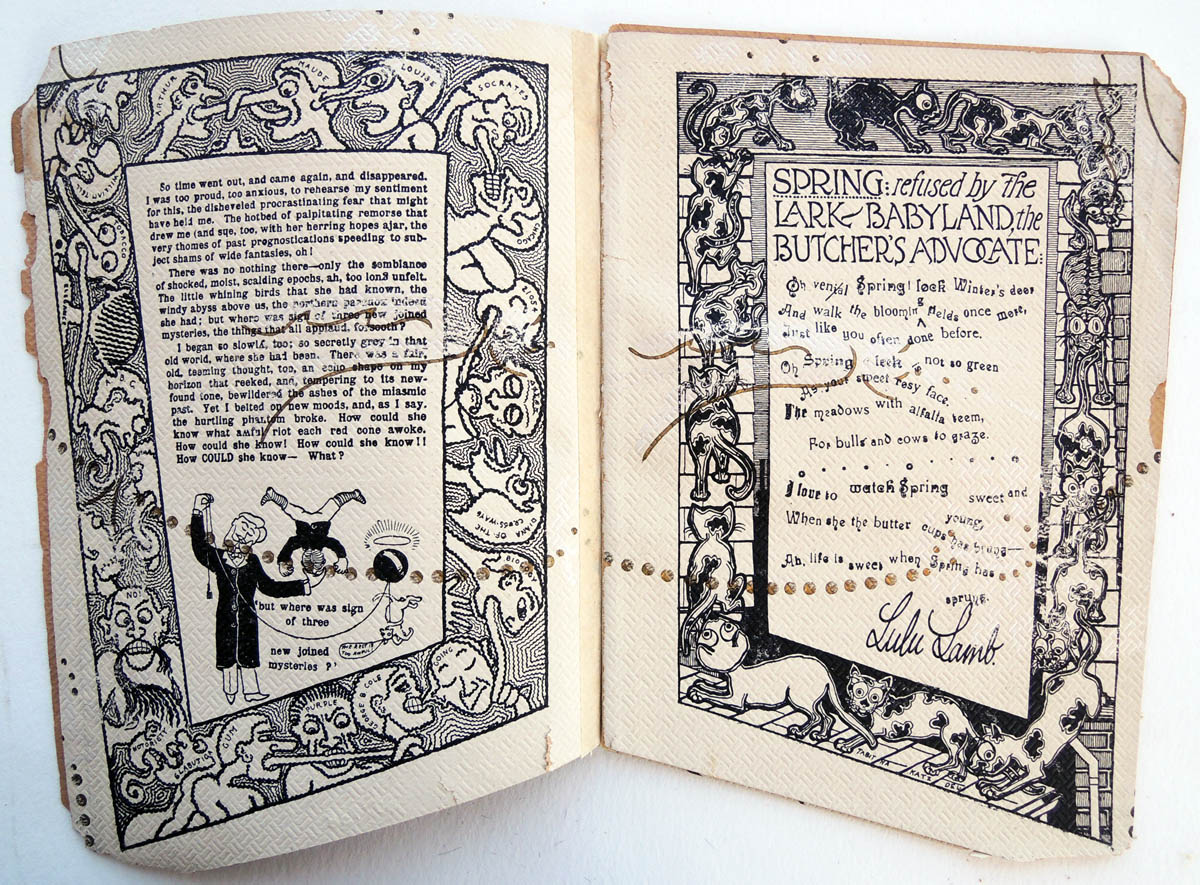 ARTHUR
MAUDE
LOUISE
SOCRATES
So time went out, and came again, and disappeared.
I was too proud, too anxious, to rehearse my sentiment
for this, the disheveled procrastinating fear that might
have held me. The hotbed of palpitating remorse that
drew me (and sue, too, with her herring hopes ajar, the
very thomes of past prognostications speeding to sub-
ject shams of wide fantasies, oh!
There was no nothing there—only the semblance
of shocked, moist, scalding epochs, ah, too long unfelt.
The little whining birds that she had known, the
windy abyss above us, the northern paradox indeed
she had; but where was sign of three new joined
mysteries, the things that all applaud, forsooth?
I began so slowly, too; so secretly grey in that
old world, where she had been. There was a fair,
old, teeming thought, too, an echo shape on my
horizon that reeked, and, tempering to its new-
found tone, bewildered the ashes of the miasmic
past. Yet I belted on new moods, and, as I say,
the hurtling phantom broke. How could she
know what awful riot each red cone awoke.
How could she know! How could she know!!
How COULD she know— What?
TOBACCO
CHICAGO
ABC
DIANA OF THE
CROSS-WAYS
NO!
'but where was sign
of three
new joined
mysteries?'
GUM
PURPLE
GEORGE B COLE
GOING
SPRING: refused by the
LARK—BABYLAND, the
BUTCHER'S ADVOCATE:
Oh venial Spring! leek Winter's deer
And walk the bloomin g fields once more,
Just like you often done before.
Oh Spring a leek is not so green
As your sweet rosy face.
The meadows with alfalfa teem,
For bulls and cows to graze.
I love to watch Spring sweet and
young,
When she the butter cups has brung—
Ah, life is sweet when Spring has
sprung.
Lulu Lamb.